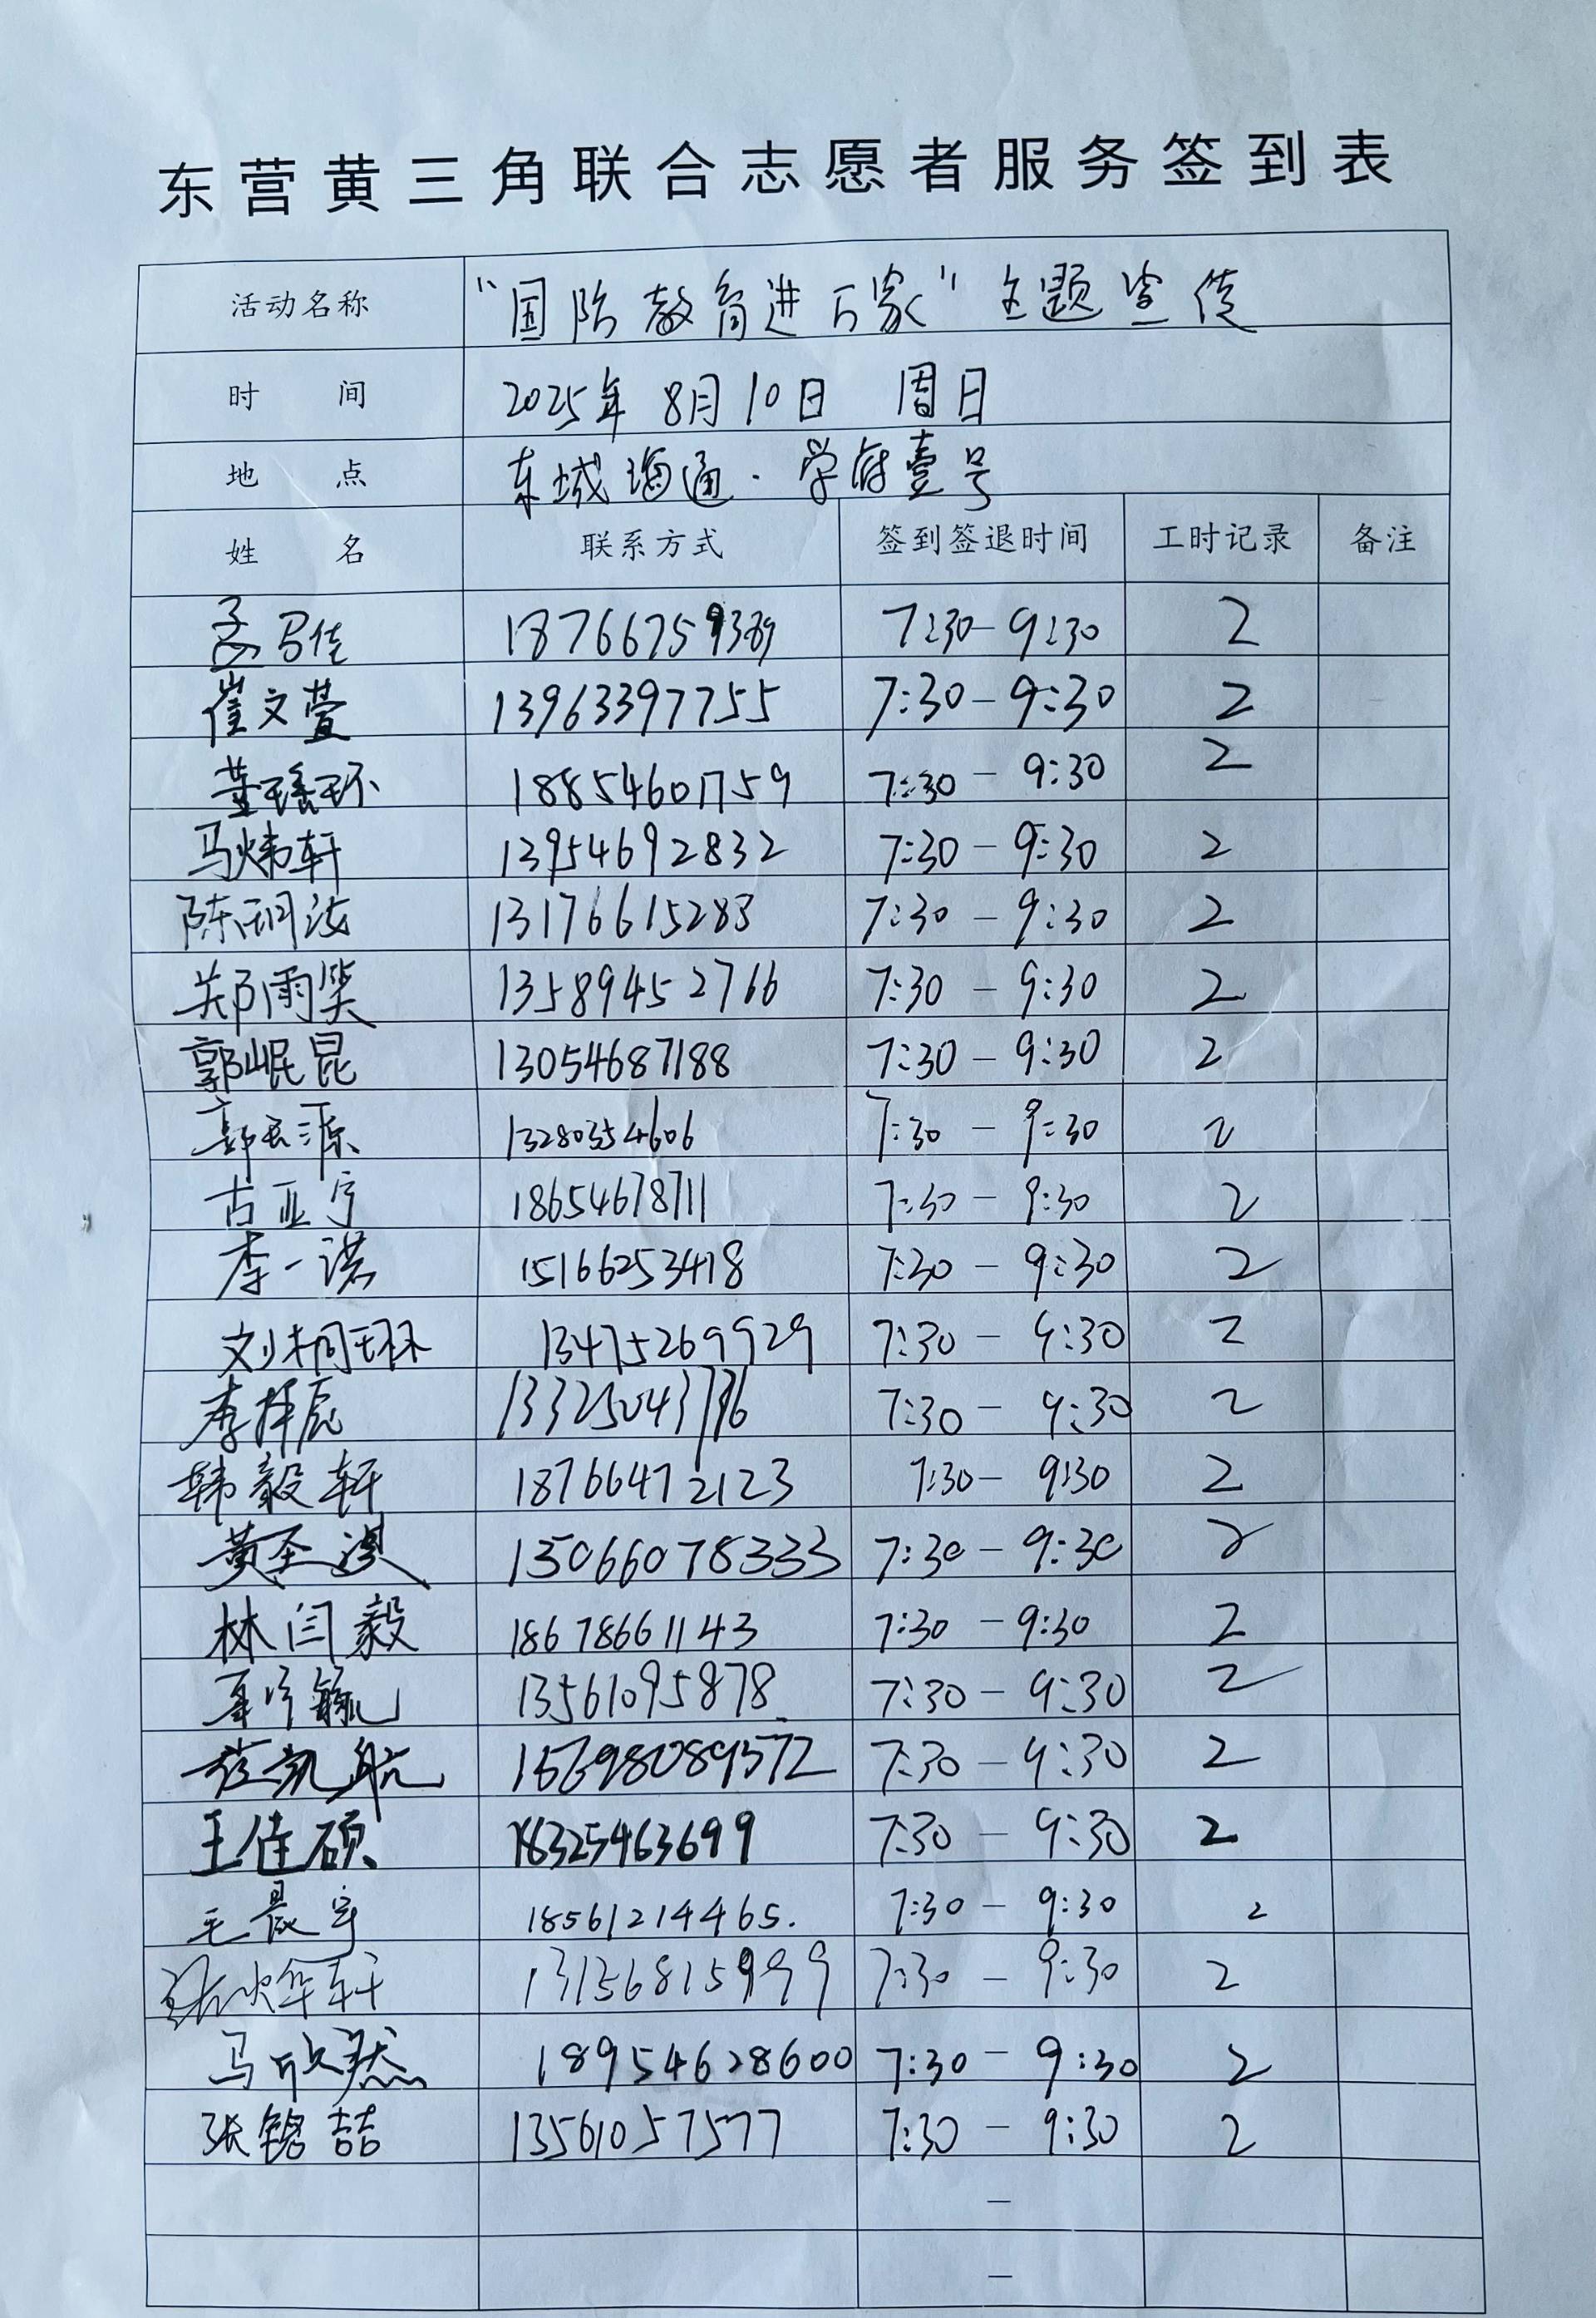 东营黄三角联合志愿者服务签到表
活动名称 “国防教育进万家”主题宣传
时 间 2025年8月10日 周日
地 点 东城海通·学府壹号
姓 名 联系方式 签到签退时间 工时记录 备注
187667593 7:30-9:30 2
崔文萱 13963397755 7:30-9:30 2
董瑶环 18854601759 7:30-9:30 2
马炜轩 13954692832 7:30-9:30 2
陈玥汝 13176615283 7:30-9:30 2
郑雨笑 13589452766 7:30-9:30 2
郭崐昆 13054687188 7:30-9:30 2
郭 源 13280354606 7:30-9:30 2
古亚宁 18654678711 7:30-9:30 2
李一诺 15166253418 7:30-9:30 2
刘桐琳 13475269929 7:30-9:30 2
李择辰 13325043776 7:30-9:30 2
韩毅轩 18766472123 7:30-9:30 2
黄圣淇 15066078333 7:30-9:30 2
林闫毅 18678661143 7:30-9:30 2
夏宇毓 13561095878 7:30-9:30 2
凯航 15698089572 7:30-9:30 2
王佳硕 18325463699 7:30-9:30 2
王晨宇 18561214465. 7:30-9:30 2
张烨轩 13156815999 7:30-9:30 2
马欣然 18954628600 7:30-9:30 2
张铭喆 13561057577 7:30-9:30 2
—
—